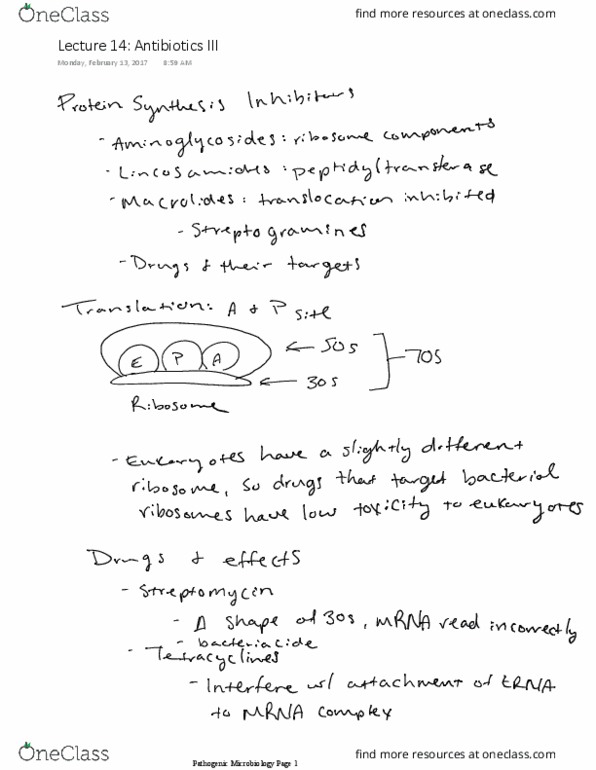 OneClass
find more resources at oneclass.com
Lecture 14: Antibiotics III
Monday, February 13, 2017 8:59 AM
Protein Synthesis Inhibitors
- Aminoglycosides: ribosome components
- Lincosamides: peptidyltransferase
- Macrolides: translocation inhibited
- Streptogramines
- Drugs & their targets
Translation: A & P site
E P A
← 50s
← 30s
70s
Ribosome
- Eukaryotes have a slightly different
ribosome, so drugs that target bacterial
ribosomes have low toxicity to eukaryotes
Drugs & effects
- Streptomycin
- Δ shape of 30s, mRNA read incorrectly
- bacteriacide
- Tetracyclines
- Interfere w/ attachment of tRNA
to mRNA complex
OneClass
Pathogenic Microbiology Page 1
find more resources at oneclass.com